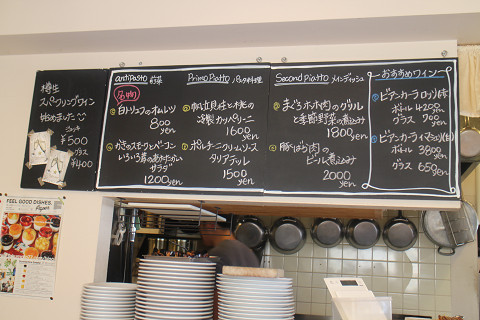 樽生
スパークリングワイン
始めました
ジョッキ
¥500
グラス
¥400
antipasto 前菜
名物
白トリュフのオムレツ
800
yen
かきのスモークとベーコン
サラダ
1200 yen
Primo Piatto パスタ料理
帆立貝柱と桃の
冷製カッペリーニ
1600
yen
ポルチーニクリームソース
タリアテッレ
1500
yen
Second piatto メインディッシュ
まぐろホホ肉のグリル
と季節野菜の煮込み
1800 yen
豚ばら肉の
ビール煮込み
2000
yen
おすすめワイン
ビアンカーラ ロッソ(赤)
ボトル 4200 yen
グラス 700 yen
ボトル 3800 yen
グラス 650 yen
FEEL GOOD DISHES.